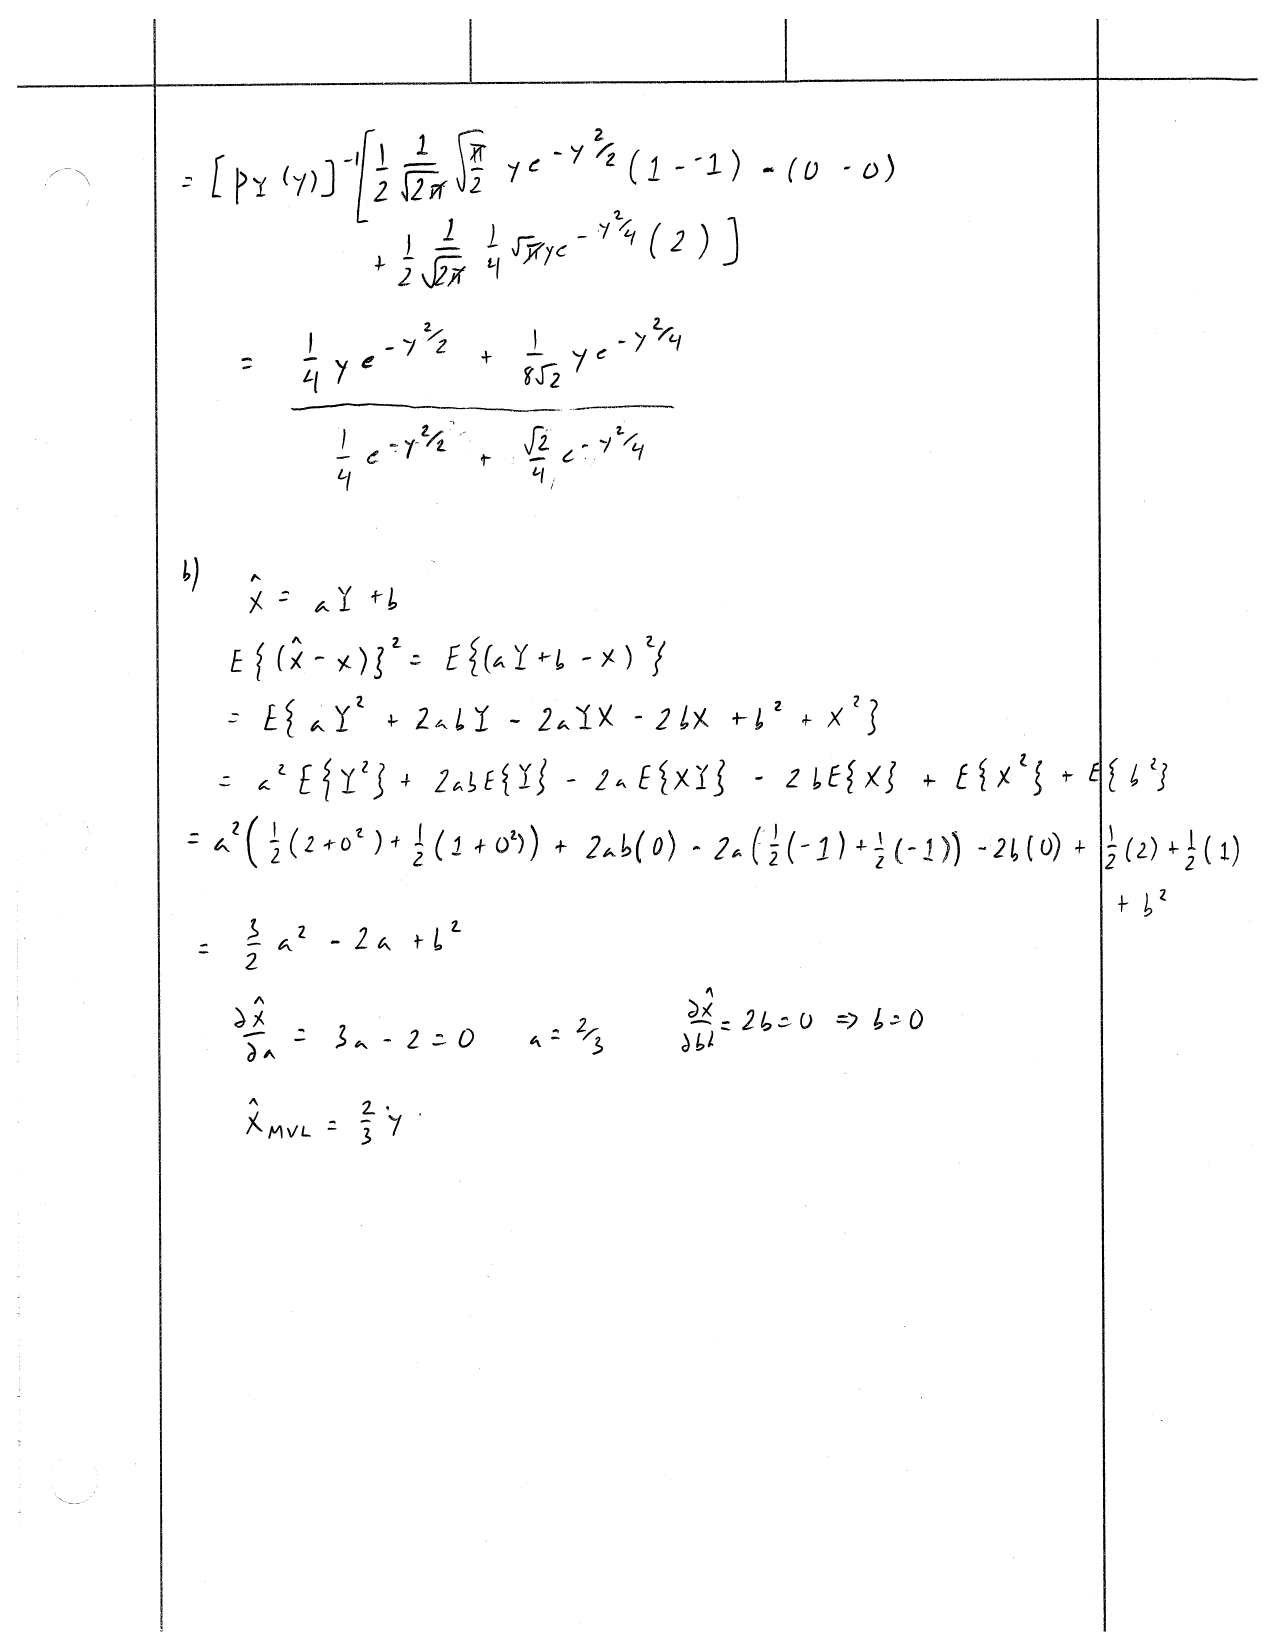 = [p_Y(y)]^-1 [ 1/2 1/√2π √(π/2) y e^-y²/2 (1 - -1) - (0 - 0)
+ 1/2 1/√2π 1/4 √π y e^-y²/4 (2) ]
= 1/4 y e^-y²/2 + 1/8√2 y e^-y²/4
1/4 e^-y²/2 + √2/4 e^-y²/4
b) x̂ = aY + b
E{(x̂ - x)}² = E{(aY + b - x)²}
= E{aY² + 2abY - 2aYX - 2bX + b² + x²}
= a² E{Y²} + 2abE{Y} - 2aE{XY} - 2bE{X} + E{x²} + E{b²}
= a²(1/2(2+0²) + 1/2(1+0²)) + 2ab(0) - 2a(1/2(-1) + 1/2(-1)) - 2b(0) + 1/2(2) + 1/2(1)
+ b²
= 3/2 a² - 2a + b²
∂x̂/∂a = 3a - 2 = 0 a = 2/3 ∂x̂/∂b = 2b = 0 ⇒ b = 0
x̂_MVL = 2/3 y